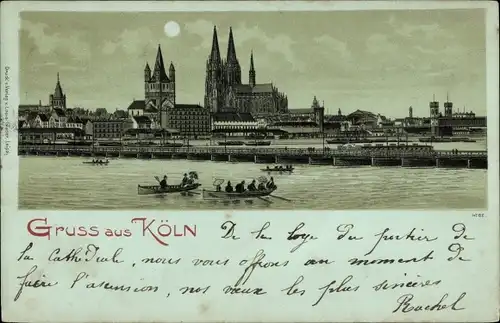 Gruss aus Köln
De la loge du portier de
la Cathédrale, nous vous offrons au moment de
faire l'ascension, nos vœux les plus sincères
Rachel